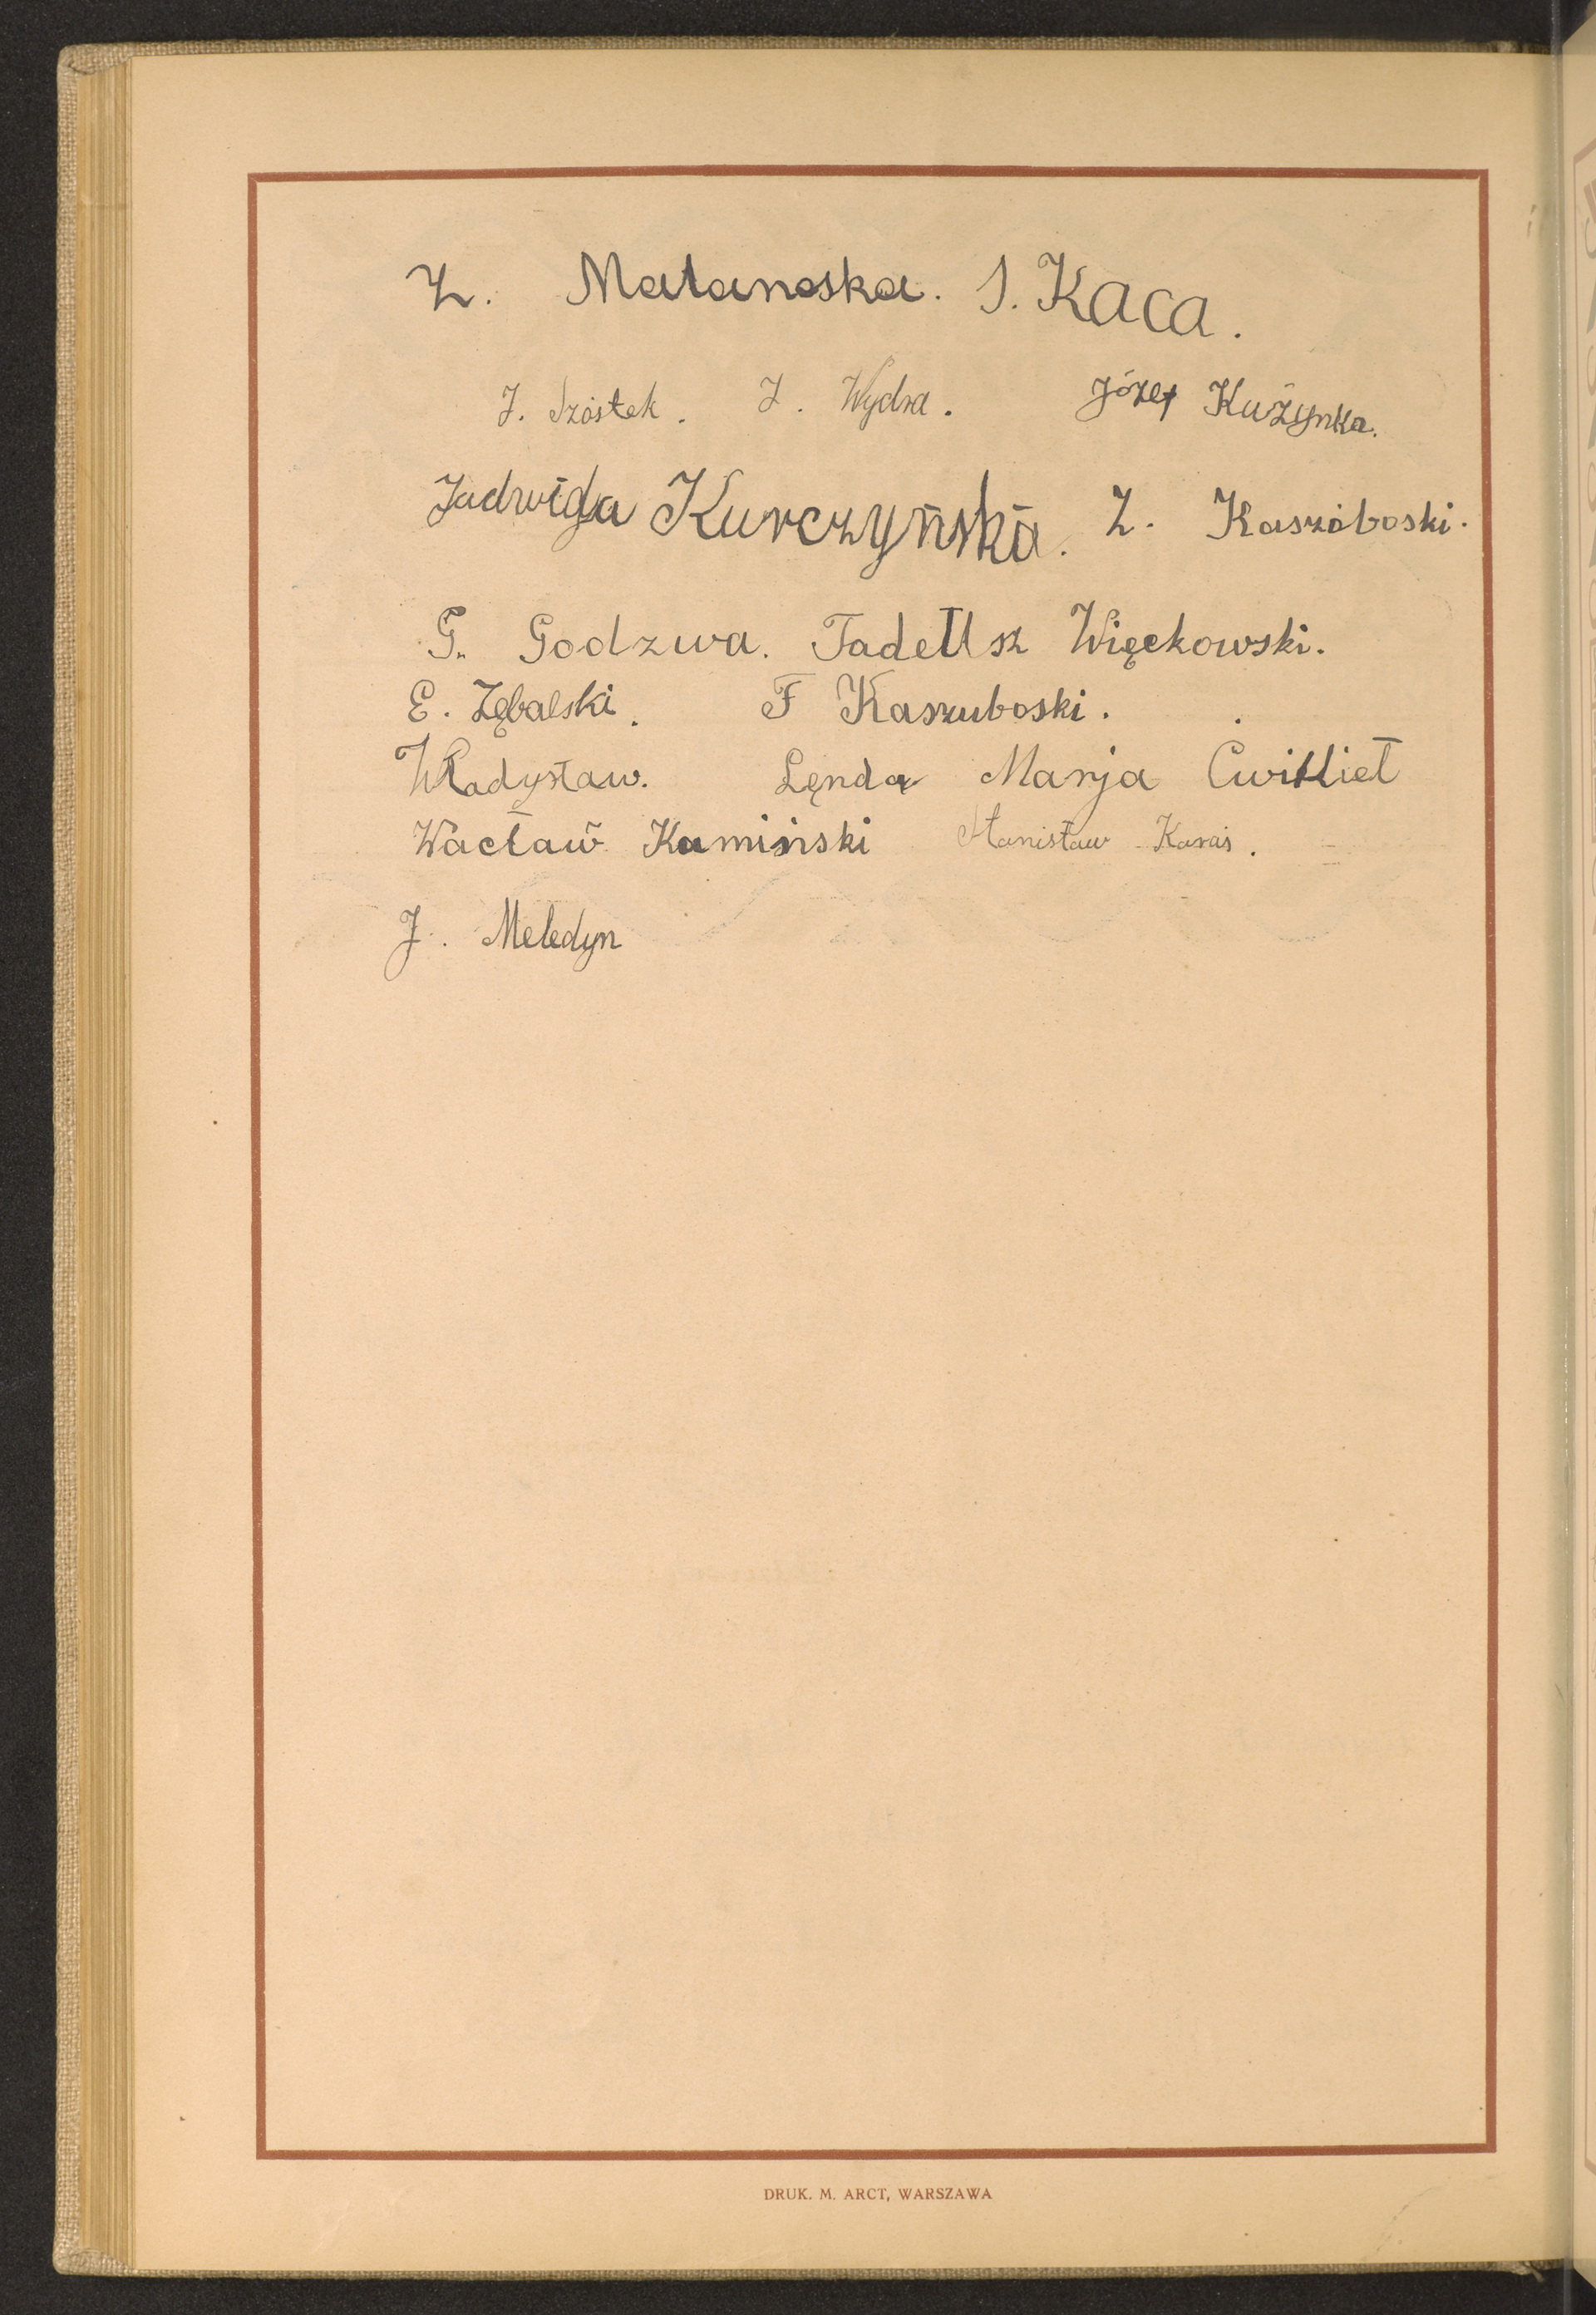 Z. Matanoska. S. Kaca.
J. Szóstek. Z. Wydra. Józef Kużynka.
Jadwiga Kurczyńska. Z. Kaszóboski.
G. Godzwa. Tadeusz Więckowski.
E. Zębalski. F Kaszuboski.
Władysław. Lęnda Marja Cwikliet
Wacław Kamiński Stanisław Karaś.
J. Meledyn
DRUK. M. ARCT, WARSZAWA